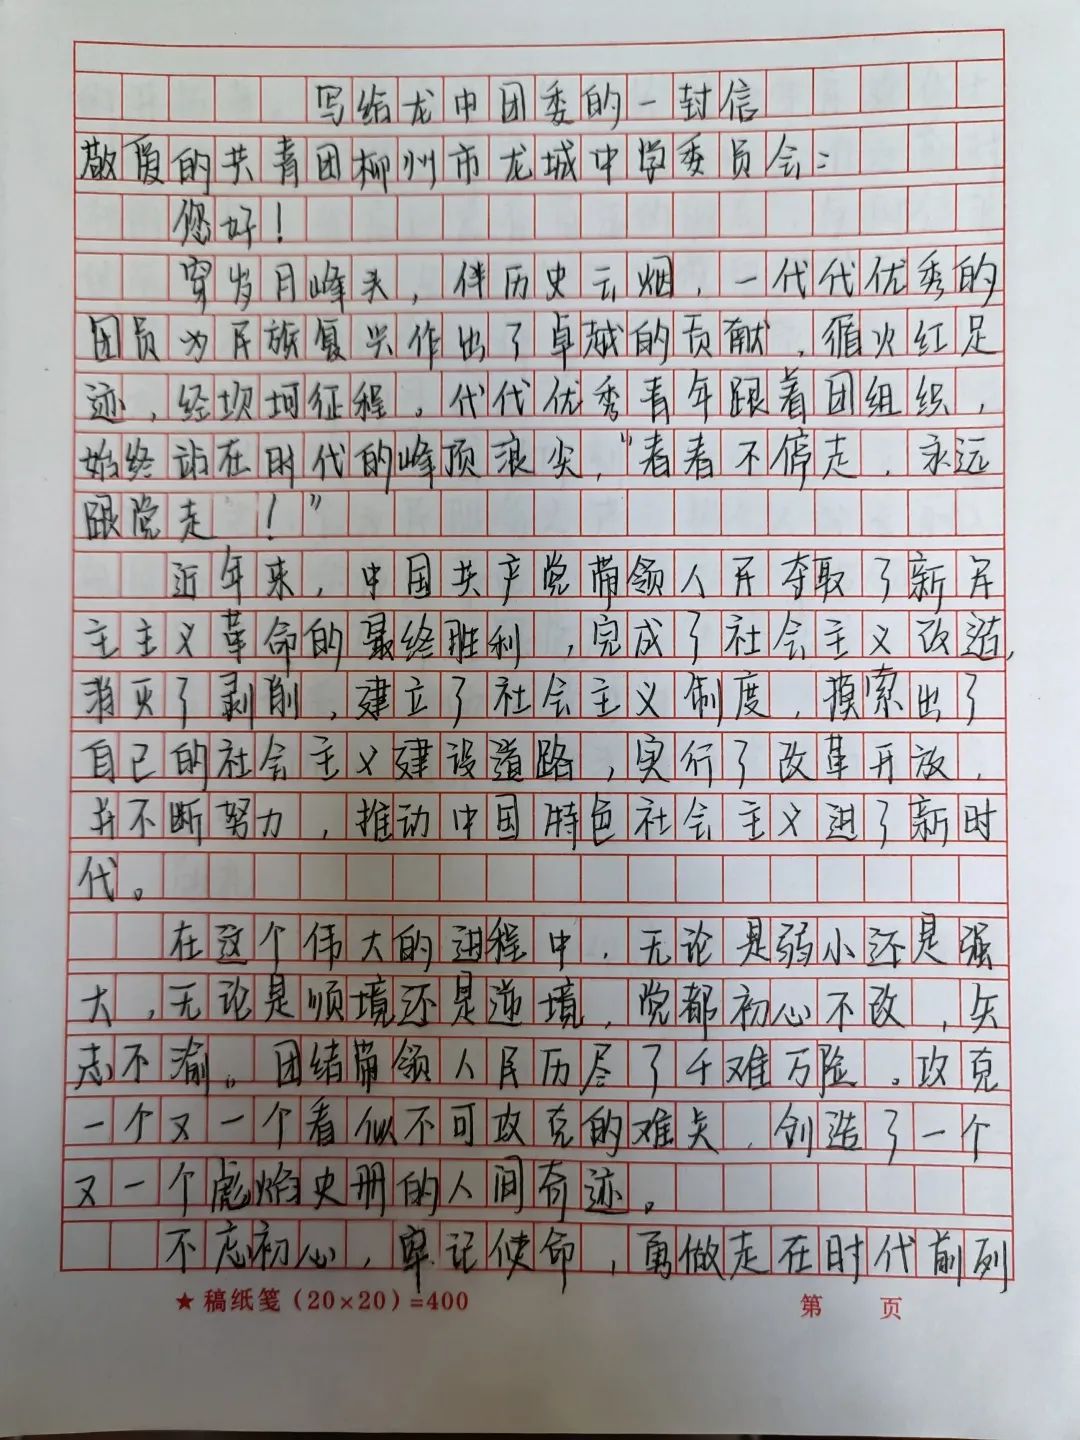 写给龙中团委的一封信
敬爱的共青团柳州市龙城中学委员会：
您好！
穿岁月峰头，伴历史云烟，一代代优秀的
团员为民族复兴作出了卓越的贡献，循火红足
迹，经坎坷征程。代代优秀青年跟着团组织，
始终站在时代的峰顶浪尖，“着着不停走，永远
跟党走！”
近年来，中国共产党带领人民夺取了新民
主主义革命的最终胜利，完成了社会主义改造，
消灭了剥削，建立了社会主义制度，摸索出了
自己的社会主义建设道路，实行了改革开放，
并不断努力，推动中国特色社会主义进了新时
代。
在这个伟大的进程中，无论是弱小还是强
大，无论是顺境还是逆境，党都初心不改，矢
志不渝。团结带领人民历尽了千难万险。攻克
一个又一个看似不可攻克的难关，创造了一个
又一个彪焰史册的人间奇迹。
不忘初心，牢记使命，勇做走在时代前列
★稿纸笺（20×20）=400 第 页